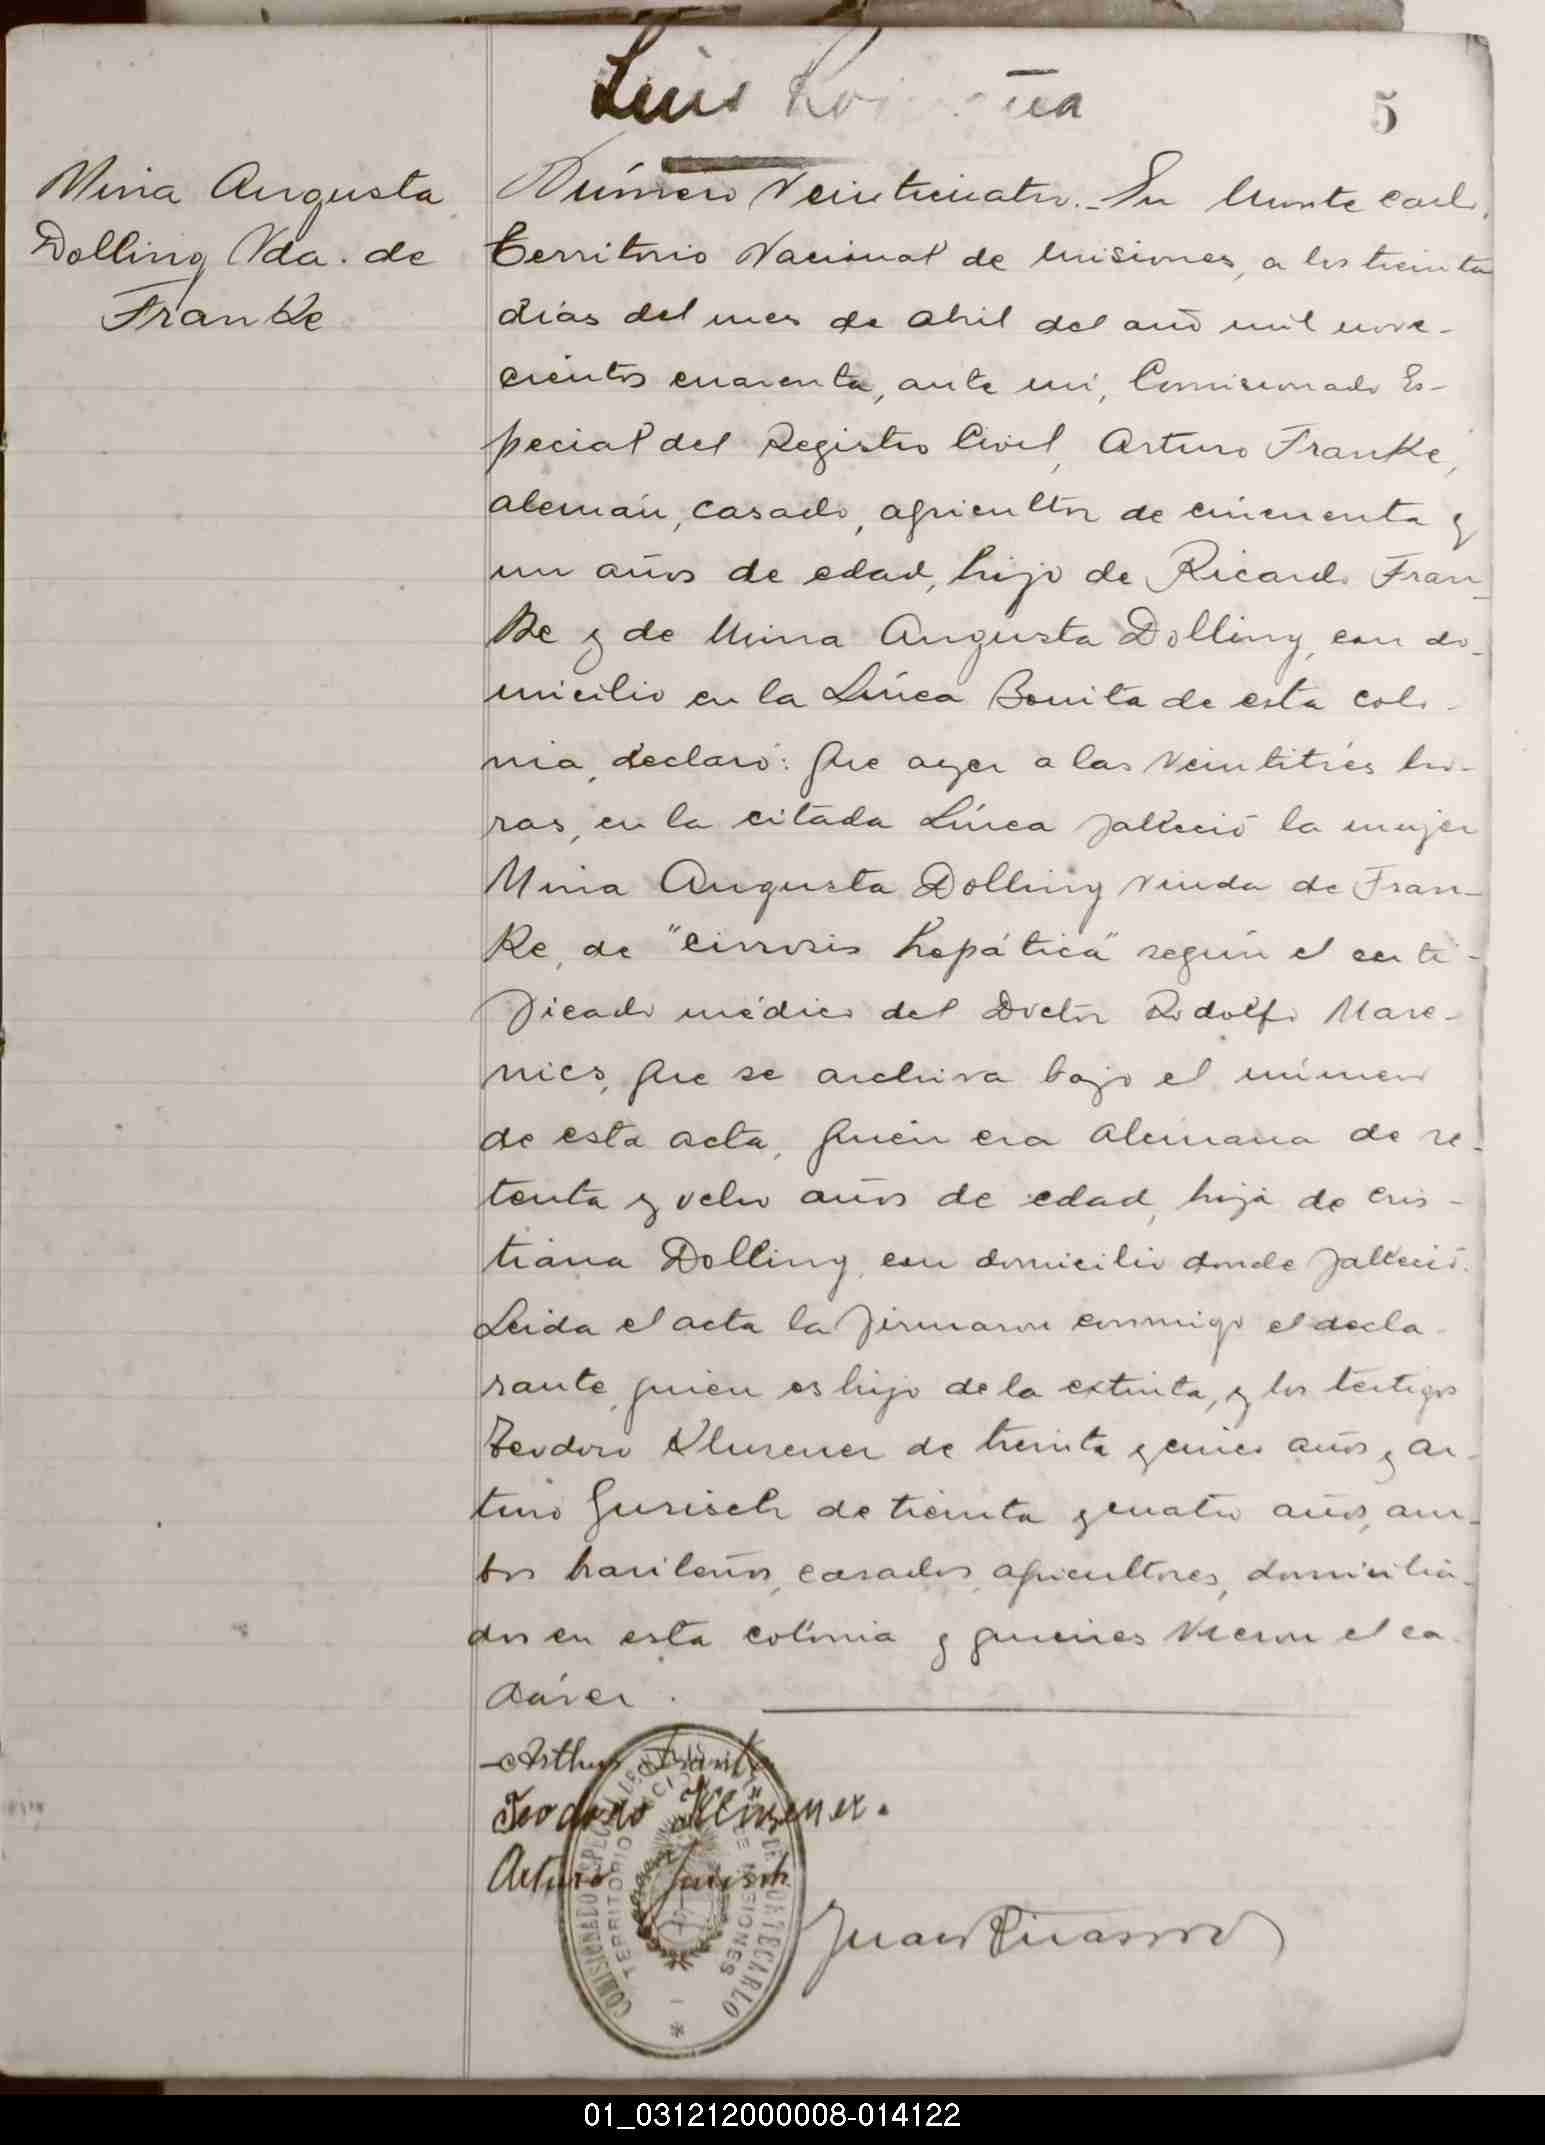 Luis
5
Mina Augusta
Dolling Vda. de
Franke
Número Veinticuatro. - En Monte Carlo,
Territorio Nacional de Misiones, a los treinta
días del mes de abril del año mil nove-
cientos cuarenta, ante mí, Comisionado Es-
pecial del Registro Civil, Arturo Franke,
alemán, casado, agricultor de cincuenta y
un años de edad, hijo de Ricardo Fran-
ke y de Mina Augusta Dolling, con do-
micilio en la Línea Bonita de esta colo-
nia, declaró: Que ayer a las veintitrés ho-
ras, en la citada Línea falleció la mujer
Mina Augusta Dolling viuda de Fran-
ke, de "cirrosis hepática" según el certi-
ficado médico del Doctor Rodolfo Mare-
nics, que se archiva bajo el número
de esta acta, quien era alemana de se-
tenta y ocho años de edad, hija de Cris-
tiana Dolling, con domicilio donde falleció.
Leida el acta la firmaron conmigo el decla-
rante, quien es hijo de la extinta, y los testigos
Teodoro Klusener de treinta y cinco años y Ar-
turo Gurisch de treinta y cuatro años, am-
bos brasileños, casados, agricultores, domicilia-
dos en esta colonia y quienes vieron el ca-
dáver.
Arthur Franke
Teodoro Klüsener.
Arturo Gurisch
Juan
COMISIONADO ESPECIAL DE MONTECARLO
TERRITORIO NACIONAL DE MISIONES
01_031212000008-014122